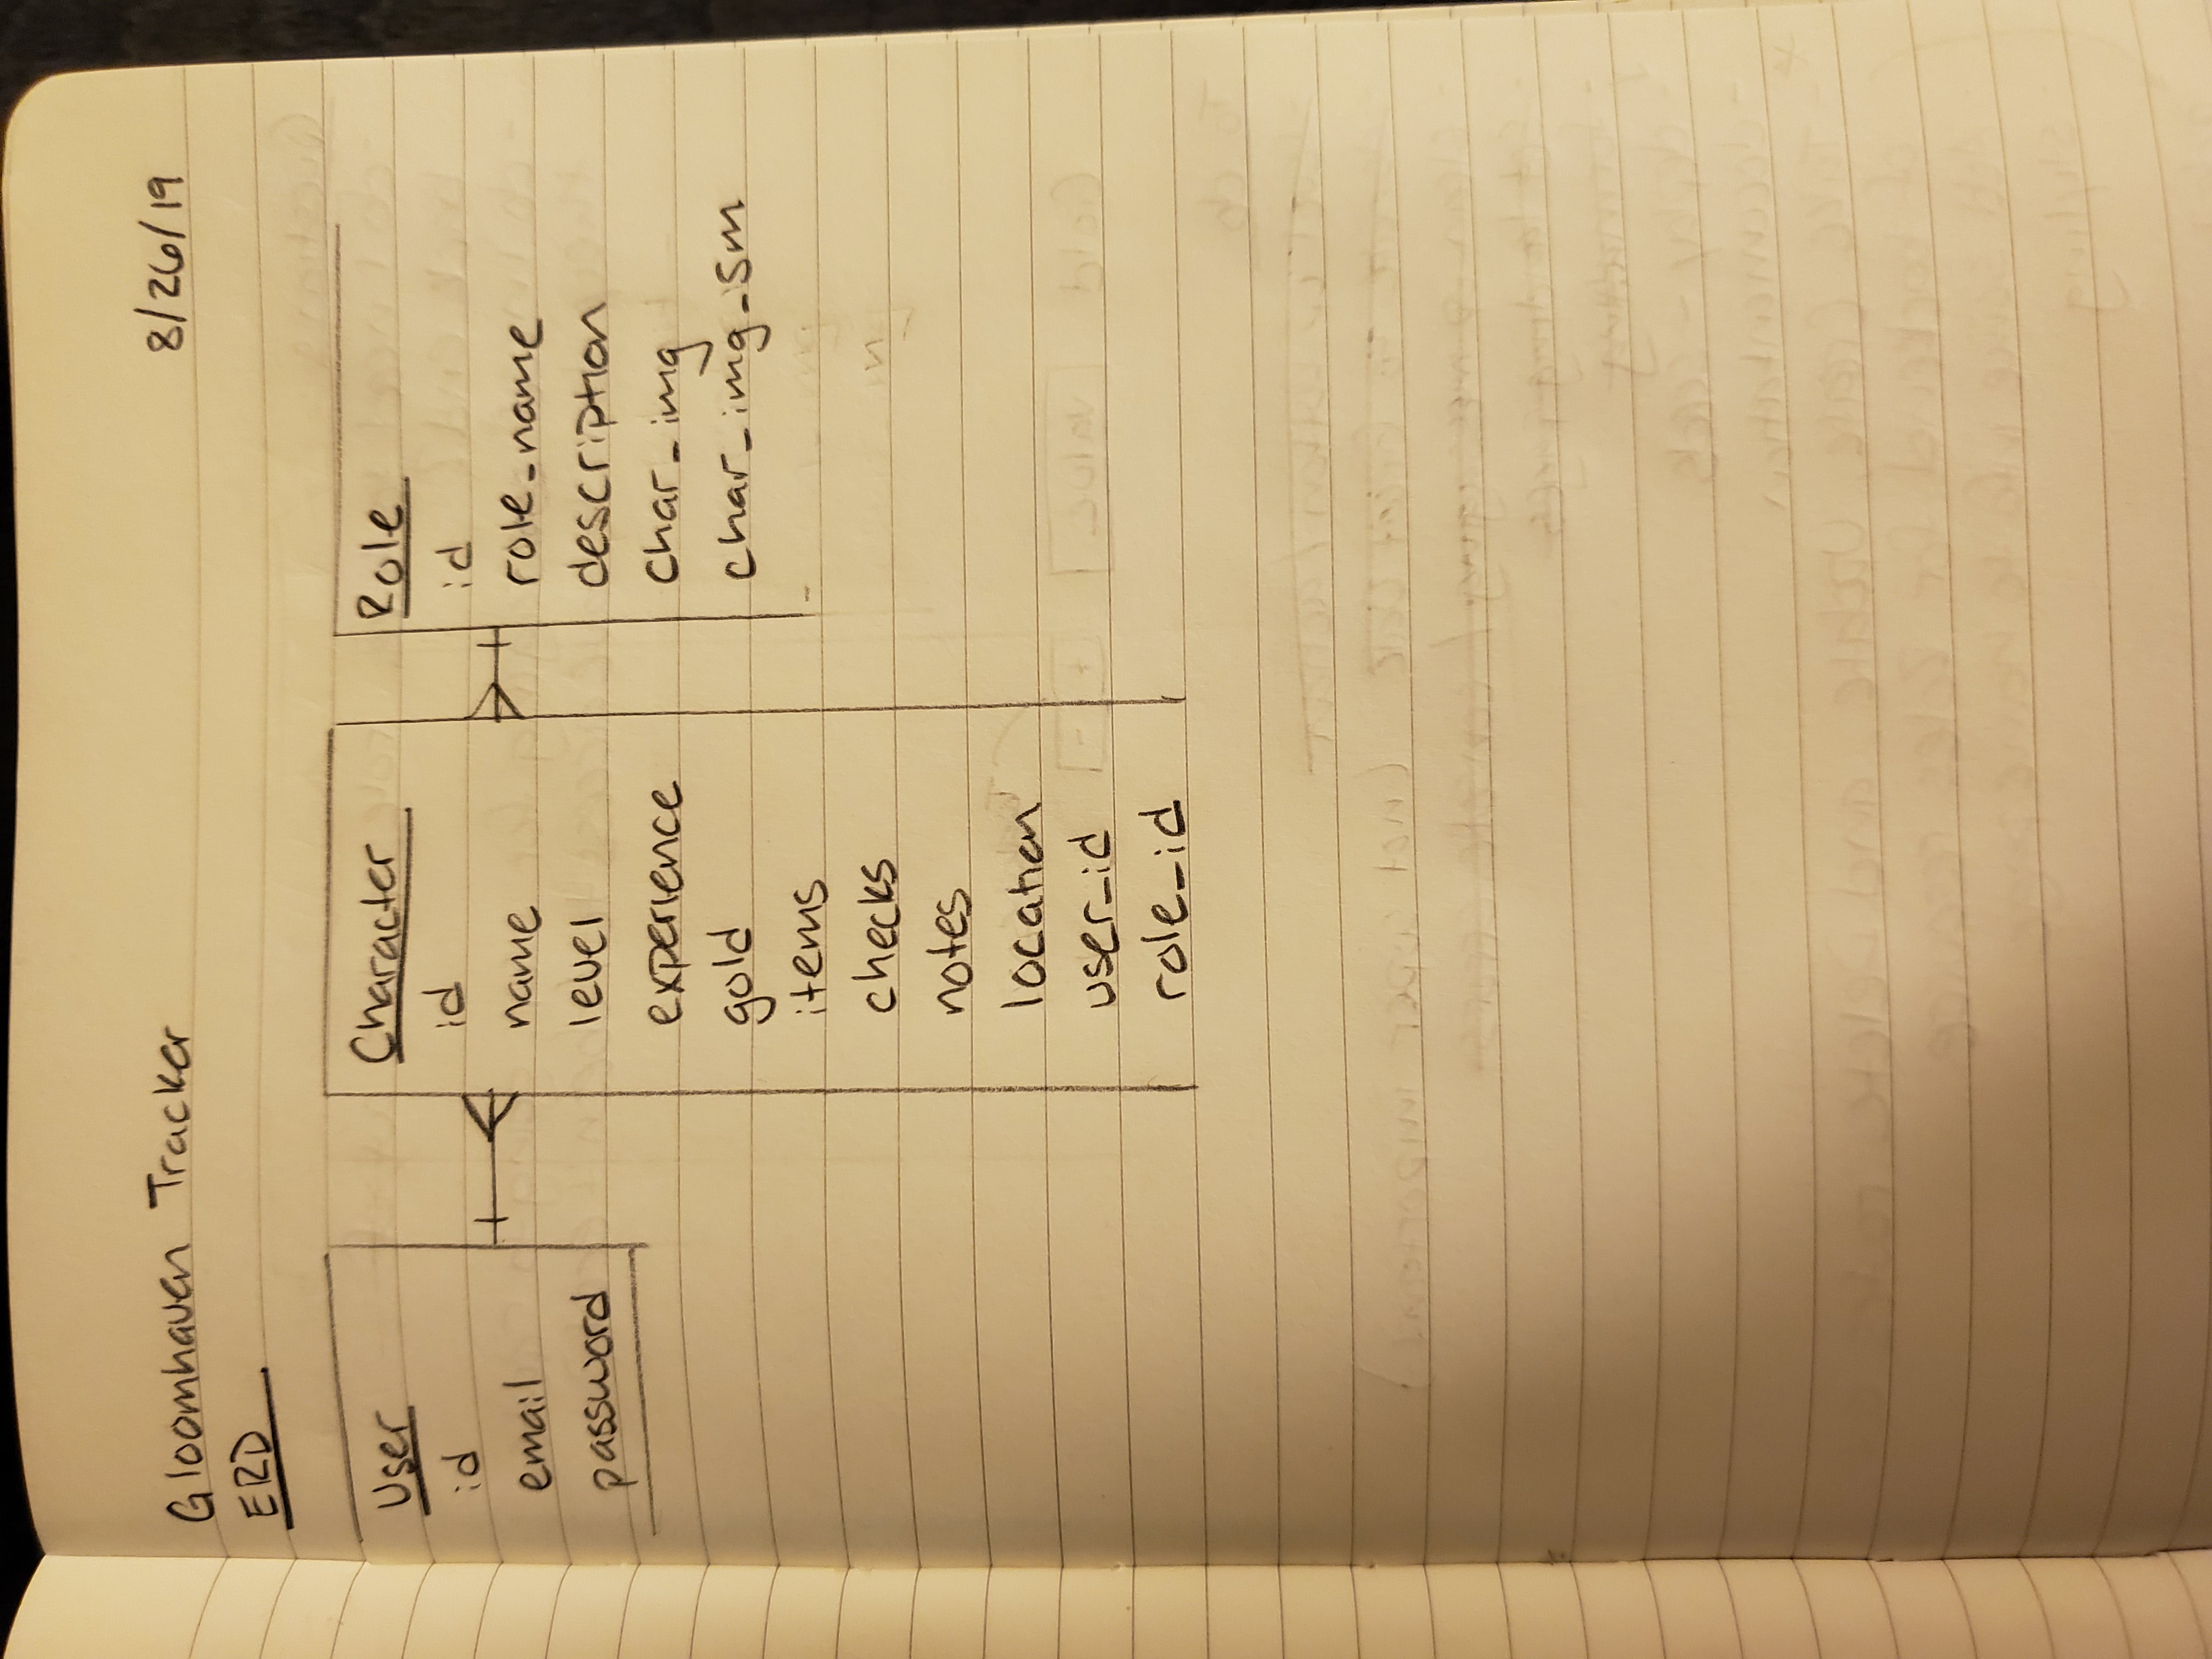 Gloomhaven Tracker 8/26/19
ERD
User
id
email
password
Character
id
name
level
experience
gold
items
checks
notes
location
user_id
role_id
Role
id
role_name
description
char_img
char_img_sm